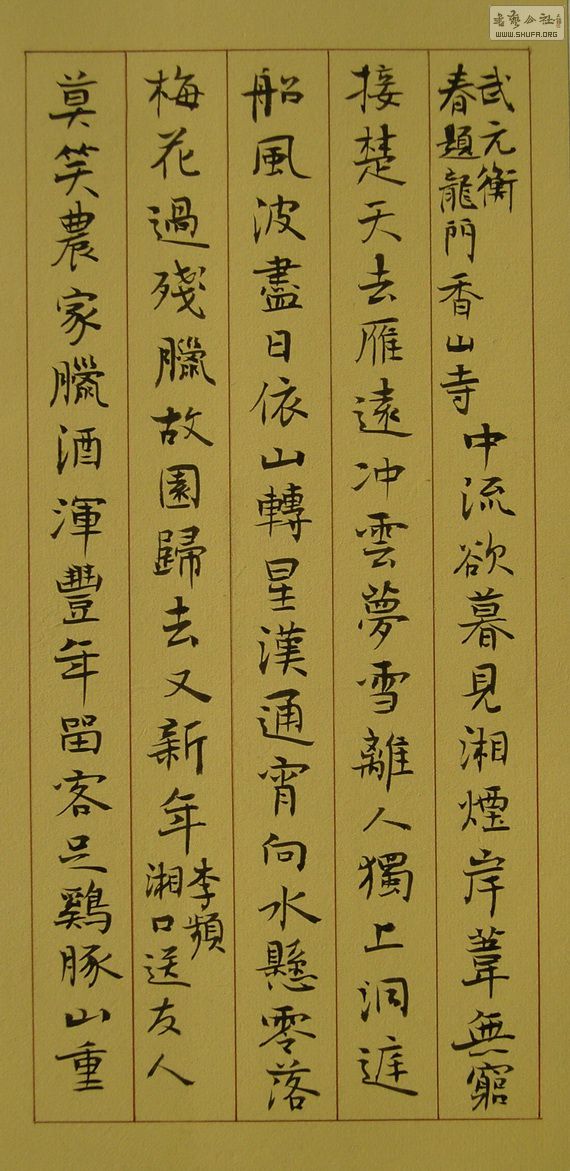 書藝公社
WWW.SHUFA.ORG
武元衡
春題龍門香山寺
中流欲暮見湘煙岸葦無窮
接楚天去雁遠冲雲夢雪離人獨上洞庭
船風波盡日依山轉星漢通宵向水懸零落
梅花過殘臘故園歸去又新年
李頻
湘口送友人
莫笑農家臘酒渾豐年留客足鷄豚山重